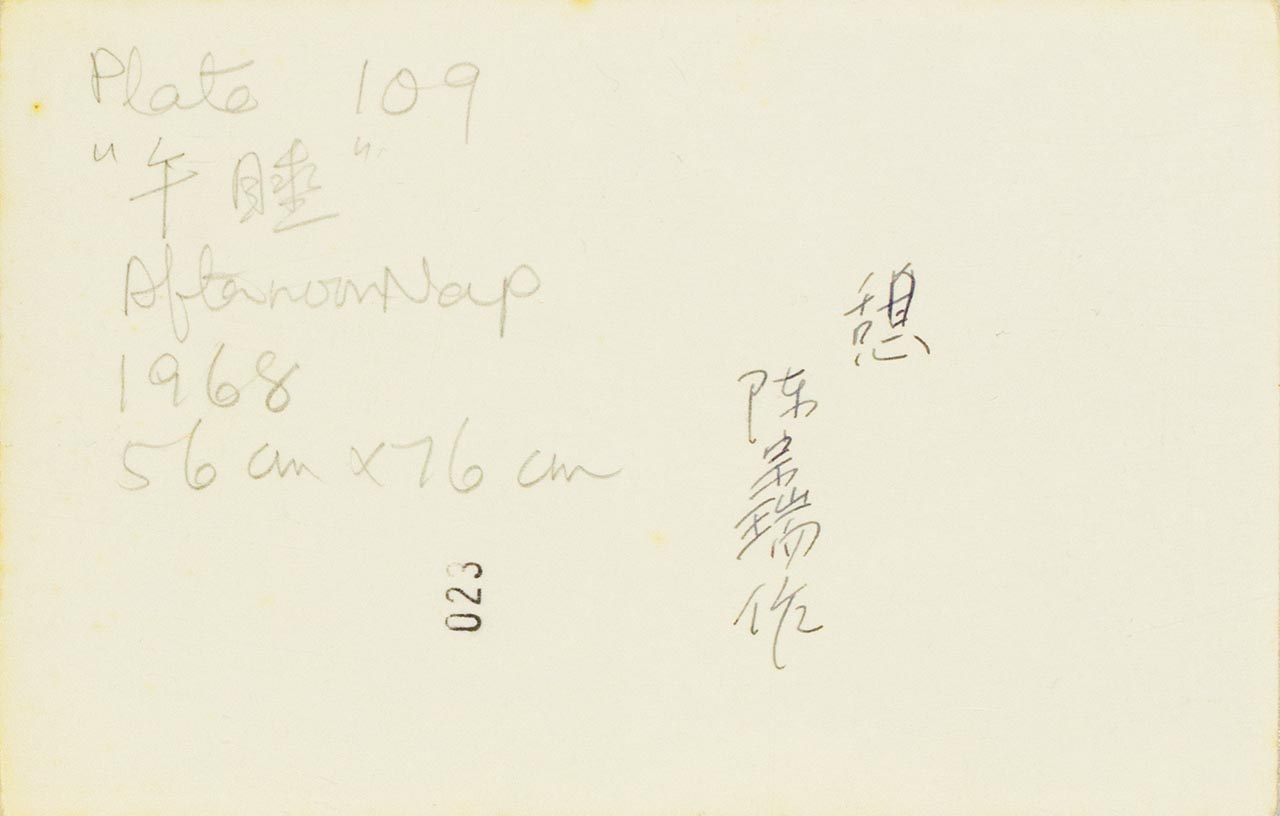 Plate 109
"午睡"
Afternoon Nap
1968
56 cm x 76 cm
憩
陈宗瑞作
023